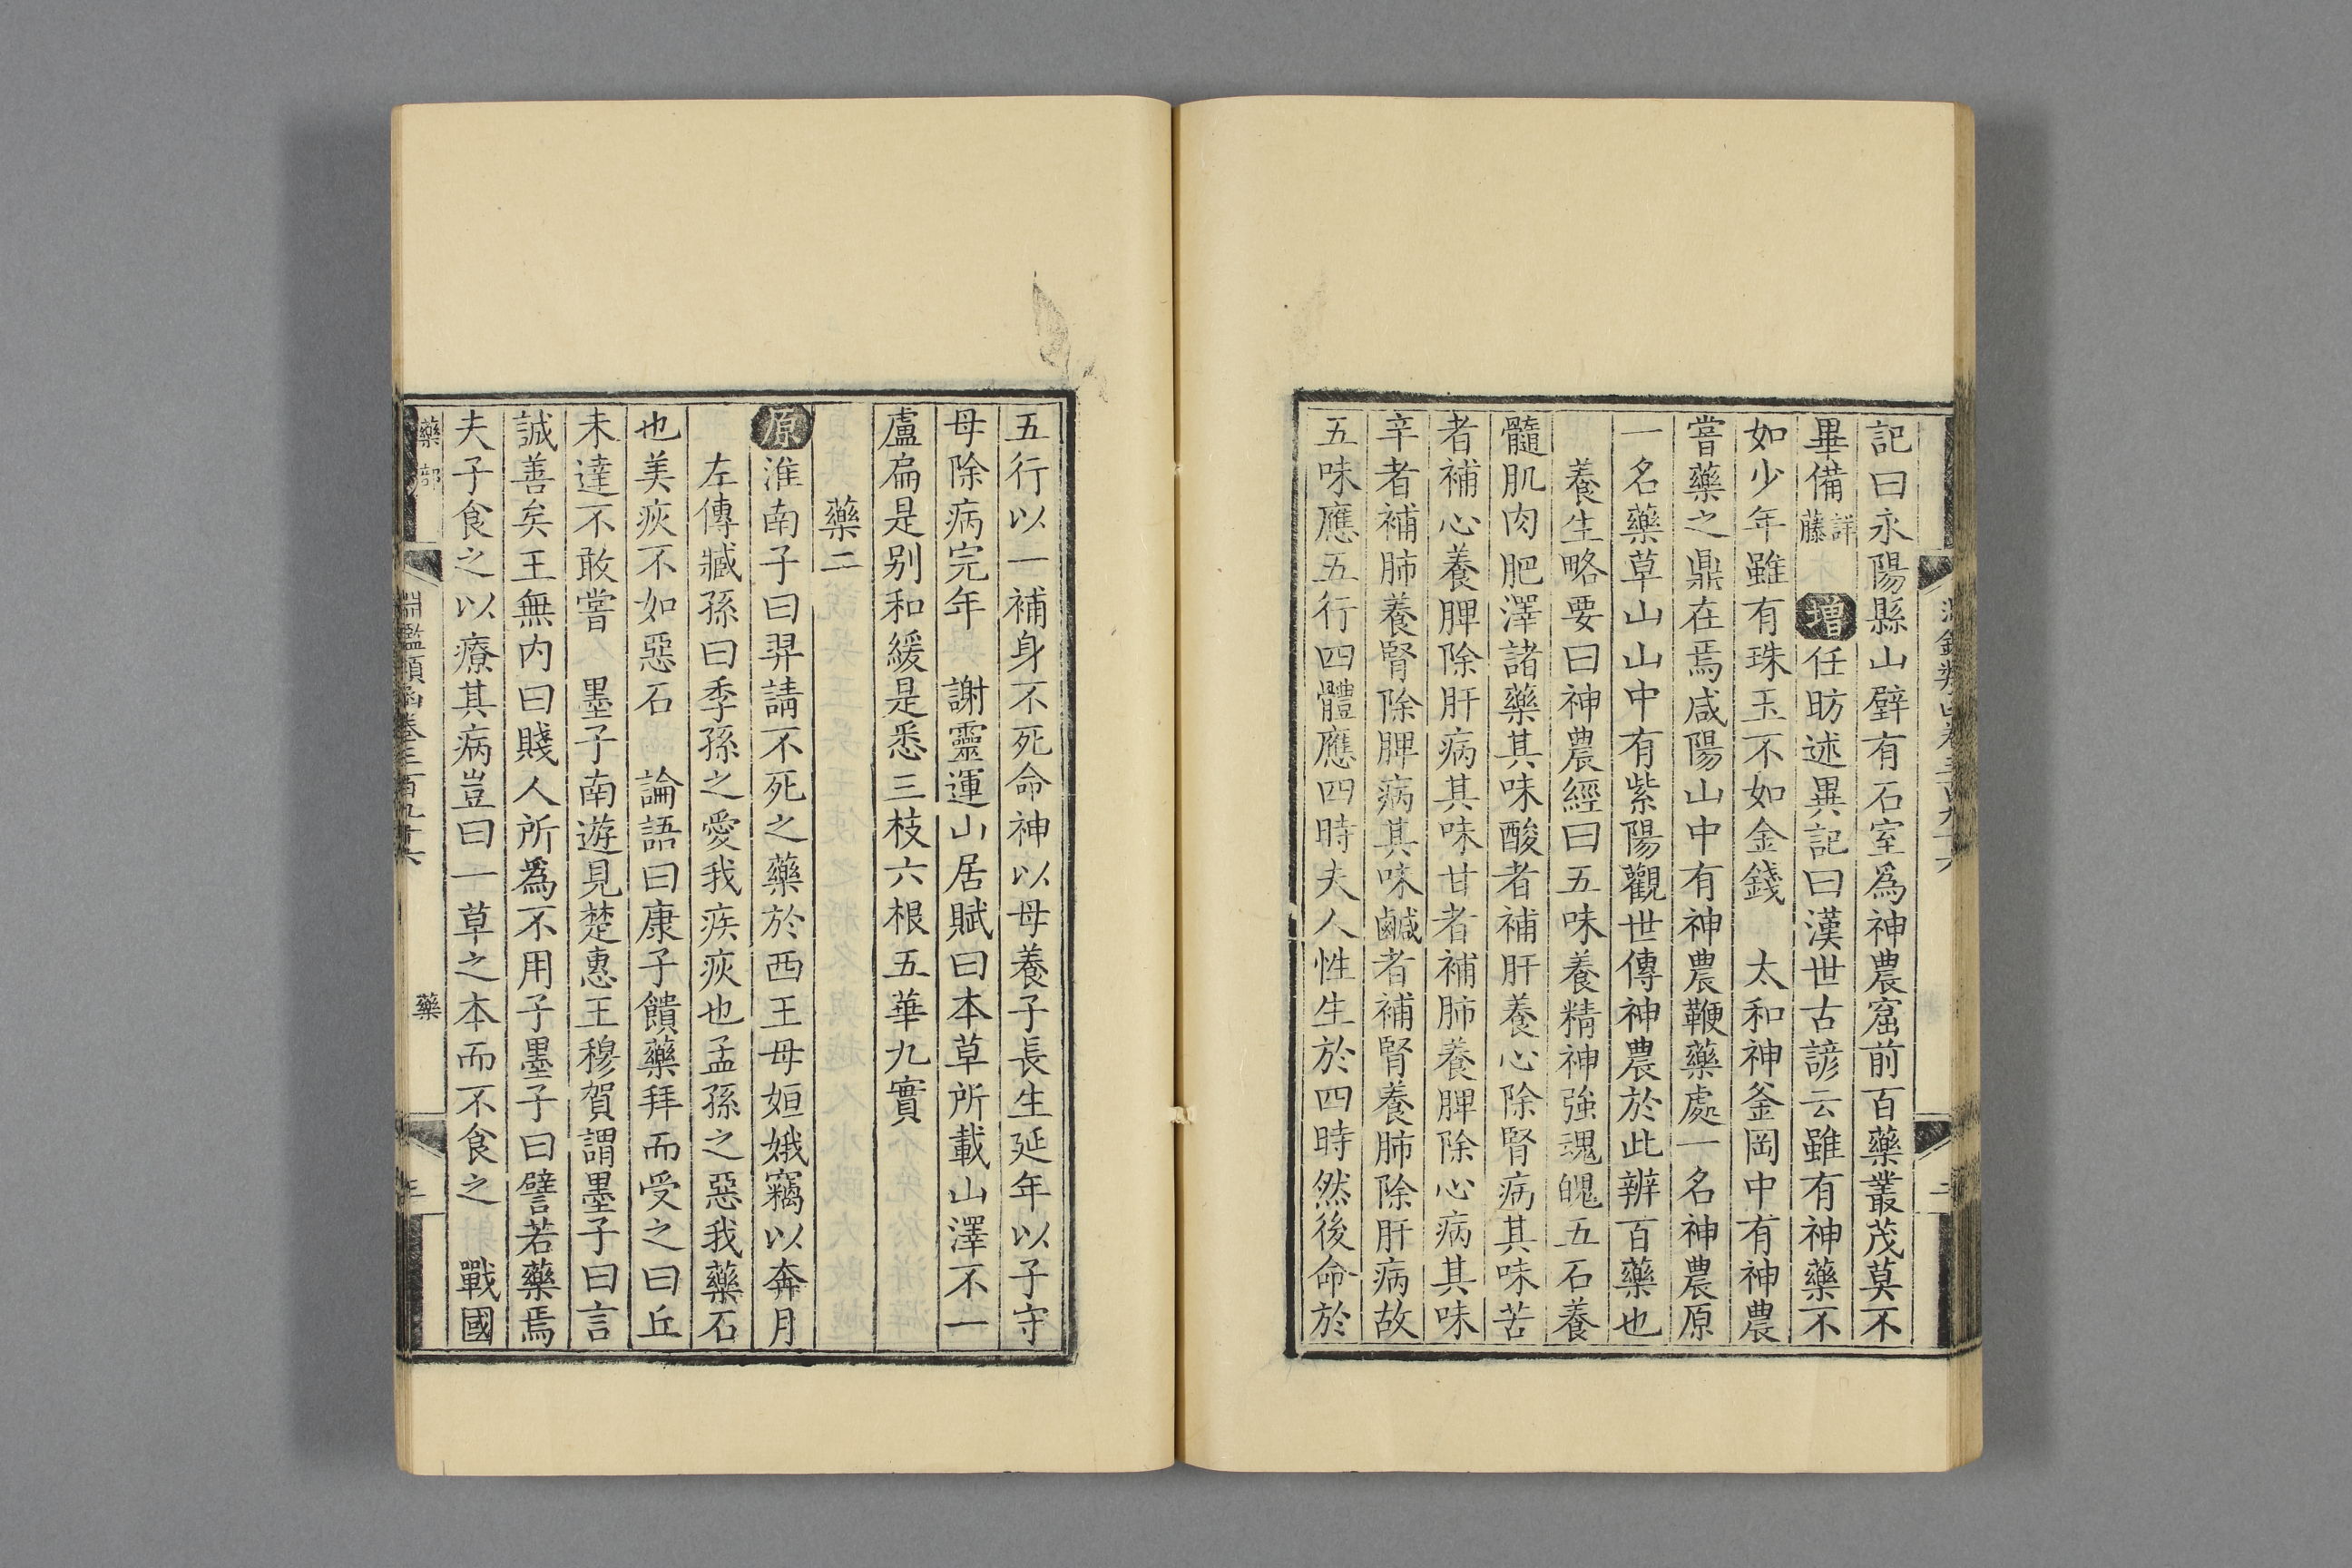 記曰永陽縣山壁有石室爲神農窟前百藥叢茂莫不
畢備詳藤 增任昉述異記曰漢世古諺云雖有神藥不
如少年雖有珠玉不如金錢 太和神釜岡中有神農
嘗藥之鼎在焉咸陽山中有神農鞭藥處一名神農原
一名藥草山山中有紫陽觀世傳神農於此辨百藥也
養生略要曰神農經曰五味養精神強魂魄五石養
髓肌肉肥澤諸藥其味酸者補肝養心除腎病其味苦
者補心養脾除肝病其味甘者補肺養脾除心病其味
辛者補肺養腎除脾病其味鹹者補腎養肺除肝病故
五味應五行四體應四時夫人性生於四時然後命於
五行以一補身不死命神以母養子長生延年以子守
母除病完年 謝靈運山居賦曰本草所載山澤不一
盧扁是别和緩是悉三枝六根五華九實
藥二
原淮南子曰羿請不死之藥於西王母姮娥竊以奔月
左傳臧孫曰季孫之愛我疾疢也孟孫之惡我藥石
也美疢不如惡石 論語曰康子饋藥拜而受之曰丘
未達不敢嘗 墨子南遊見楚惠王穆賀謂墨子曰言
誠善矣王無内曰賤人所爲不用子墨子曰譬若藥焉
夫子食之以療其病豈曰一草之本而不食之 戰國
藥部 淵鑑類函卷三百九十六 藥